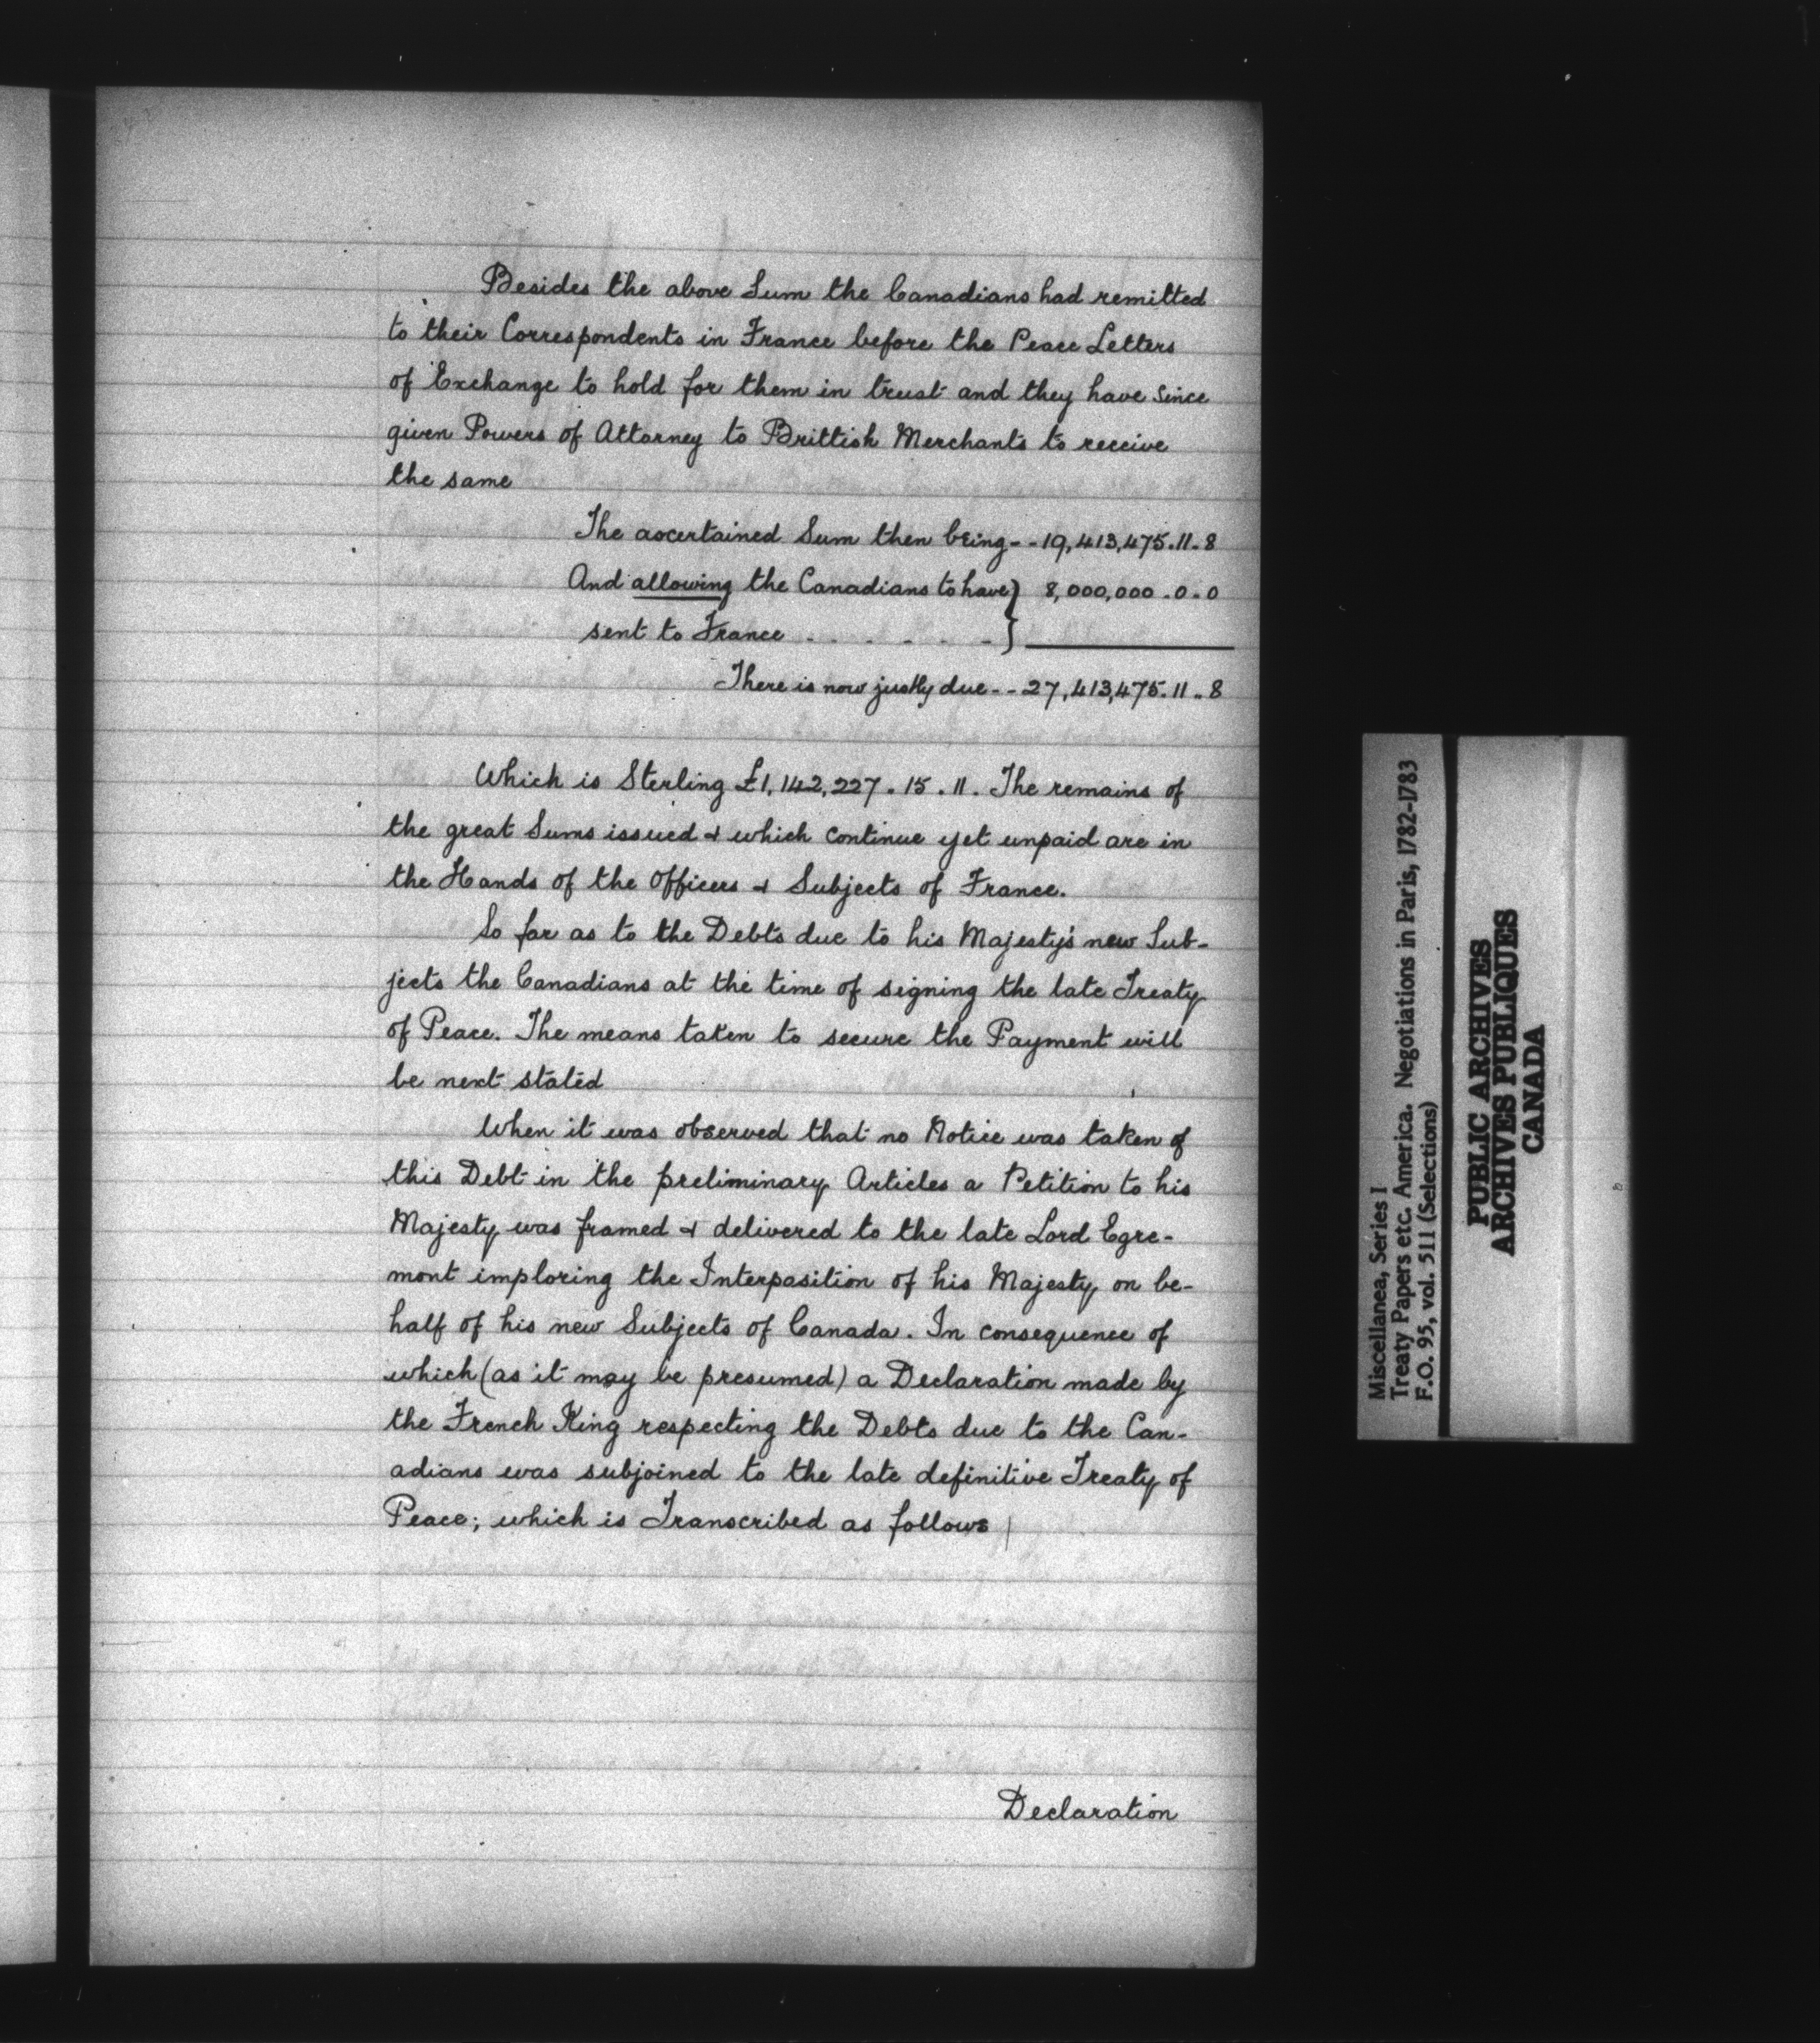 Besides the above Sum the Canadians had remitted
to their Correspondents in France before the Peace Letters
of Exchange to hold for them in trust and they have since
given Powers of Attorney to Brittish Merchants to receive
the same
The ascertained Sum then being - - 19,413,475.11.8
And allowing the Canadians to have } 8,000,000.0.0
sent to France . . . . . - }
There is now justly due - - 27,413,475.11.8
Which is Sterling £1,142,227.15.11. The remains of
the great Sums issued & which continue yet unpaid are in
the Hands of the Officers & Subjects of France.
So far as to the Debts due to his Majesty's new Sub-
jects the Canadians at the time of signing the late Treaty
of Peace. The means taken to secure the Payment will
be next stated
When it was observed that no Notice was taken of
this Debt in the preliminary Articles a Petition to his
Majesty was framed & delivered to the late Lord Egre-
mont imploring the Interposition of his Majesty on be-
half of his new Subjects of Canada. In consequence of
which (as it may be presumed) a Declaration made by
the French King respecting the Debts due to the Can-
adians was subjoined to the late definitive Treaty of
Peace; which is Transcribed as follows
Declaration
Miscellanea, Series I
Treaty Papers etc. America. Negotiations in Paris, 1782-1783
F.O. 95, vol. 511 (Selections)
PUBLIC ARCHIVES
ARCHIVES PUBLIQUES
CANADA